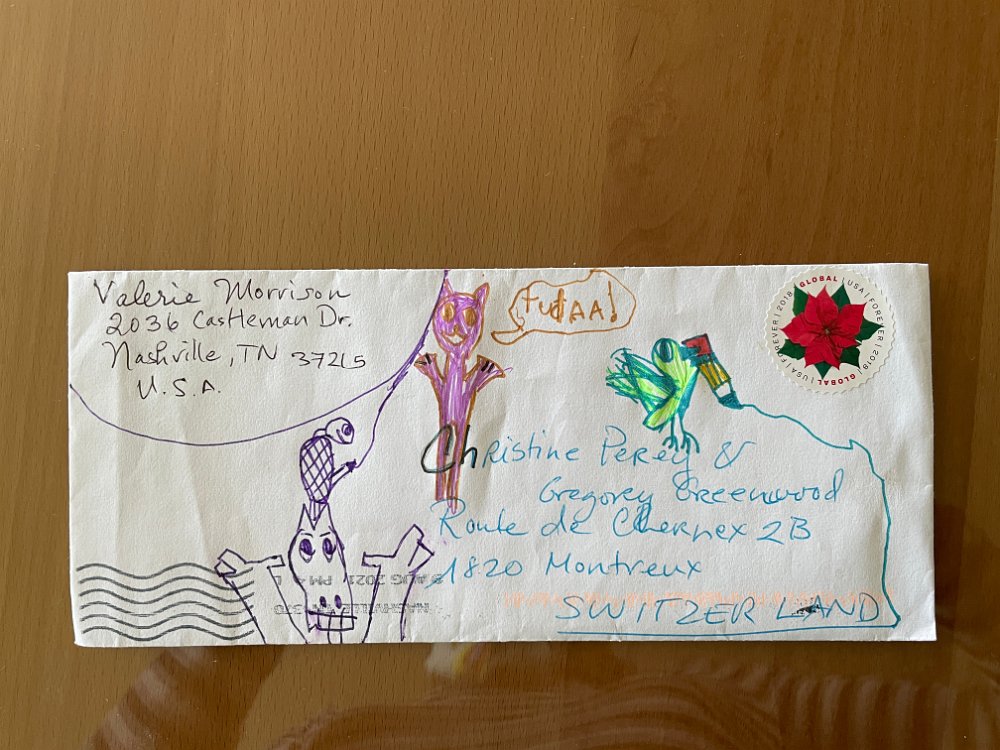 Valerie Morrison
2036 Castleman Dr.
Nashville, TN 37215
U.S.A.
GLOBAL | USA | FOREVER | 2018 | GLOBAL | USA | FOREVER | 2018
Christine Perey &
Gregorey Greenwood
Route de Chernex 2B
1820 Montreux
SWITZERLAND
AUG 2021 PM
NASHVILLE TN 370